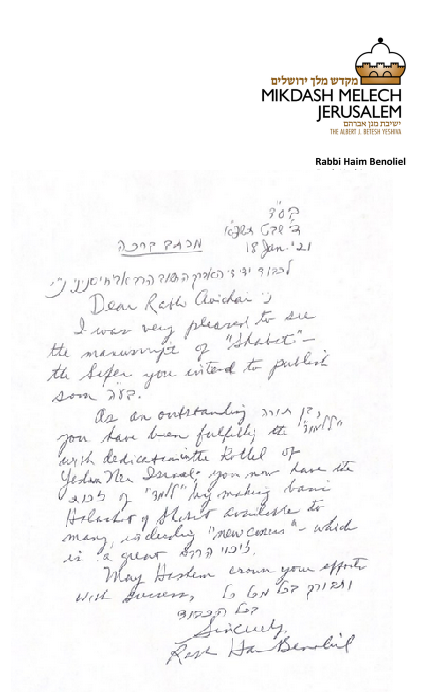 מקדש מלך ירושלים
MIKDASH MELECH
JERUSALEM
ישיבת מגן אברהם
THE ALBERT J. BETESH YESHIVA
Rabbi Haim Benoliel
בס"ד
שבט
18 Jan. '21
מכתב ברכה
לכבוד
Dear Rabbi Avichai
I was very pleased to see
the manuscript of "Shabat" -
the Sefer you intend to publish
soon בעז"ה.
As an outstanding בן תורה
you have been fulfilling the "ללמוד"
with dedication in the Kollel of
you now have the
זכות of "ללמד" by making basic
Halachot of Shabat available to
many, including "newcomers" - which
is a great זיכוי הרבים.
May Hashem crown your efforts
with success,
בכל הכבוד
Sincerely,
Rabbi Haim Benoliel